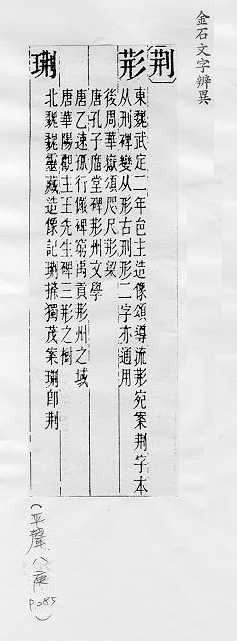 金石文字辨異
荆
形
東魏武定二年邑主造像頌導流形宛案荆字本
从刑碑變从形古刑形二字亦通用
後周華嶽頌咫尺形梁
唐孔子廟堂碑形州文學
唐乙速孤行儼碑窮禹貢形州之域
唐華陽觀主王先生碑三形之樹
琍
北魏魏靈藏造像記琍條獨茂案琍即荆
(平聲八庚 p285)